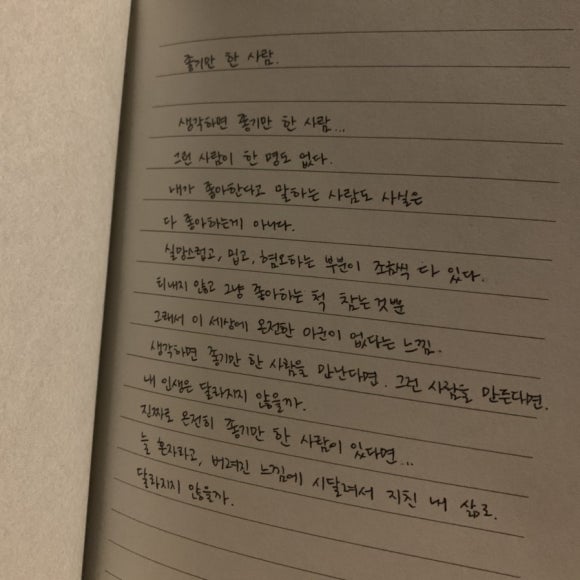 좋기만 한 사람.
생각하면 좋기만 한 사람...
그런 사람이 한 명도 없다.
내가 좋아한다고 말하는 사람도 사실은
다 좋아하는게 아니다.
실망스럽고, 밉고, 혐오하는 부분이 조금씩 다 있다.
티내지 않고 그냥 좋아하는 척 참는것뿐
그래서 이 세상에 온전한 아군이 없다는 느낌.
생각하면 좋기만 한 사람을 만난다면. 그런 사람을 만든다면.
내 인생은 달라지지 않을까.
진짜로 온전히 좋기만 한 사람이 있다면...
늘 혼자라고, 버려진 느낌에 시달려서 지친 내 삶도
달라지지 않을까.